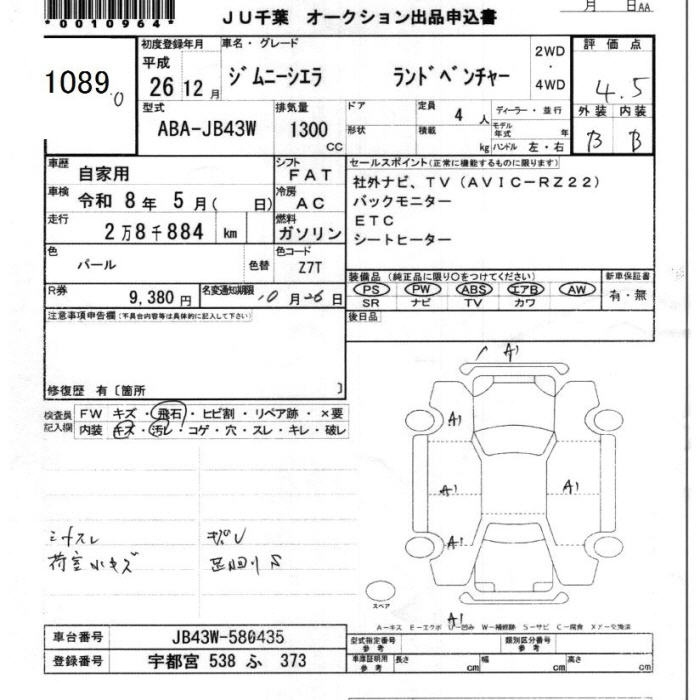 *0010964*
JU千葉 オークション出品申込書
月 日AA
1089 0
初度登録年月 車名・グレード 2WD・4WD 評価点
平成 26 12月 ジムニーシエラ ランドベンチャー 4.5
外装 内装
B B
型式 排気量 ドア 定員 4人 ディーラー・並行
ABA-JB43W 1300 CC 形状 積載 kg モデル年式 年
ハンドル 左・右
車歴 自家用 シフト FAT セールスポイント(正常に機能するものに限ります)
車検 令和 8年 5月( 日) 冷房 AC 社外ナビ、TV(AVIC-RZ22)
バックモニター
走行 2万8千884 km 燃料 ガソリン ETC
シートヒーター
色 パール 色替 色コード Z7T
装備品(純正品に限り○をつけてください) 新車保証書
PS PW ABS エアB AW 有・無
SR ナビ TV カワ
R券 9,380円 名変通知期限 10月26日
後日品
注意事項申告欄(不具合内容等は具体的に記入して下さい)
修復歴 有〔箇所 〕
検査員記入欄 FW キズ・飛石・ヒビ割・リペア跡・×要
内装 キズ・汚レ・コゲ・穴・スレ・キレ・破レ
A1
A1
A1 A1
A1
A1
シートスレ
荷室小キズ 足回りS
スペア
A－キズ E－エクボ U－凹み W－補修跡 S－サビ C－腐食 X・XX－交換済
車台番号 JB43W-580435
型式指定番号 参考 類別区分番号 参考
登録番号 宇都宮 538 ふ 373
車庫証明用 参考 長さ cm 幅 cm 高さ cm